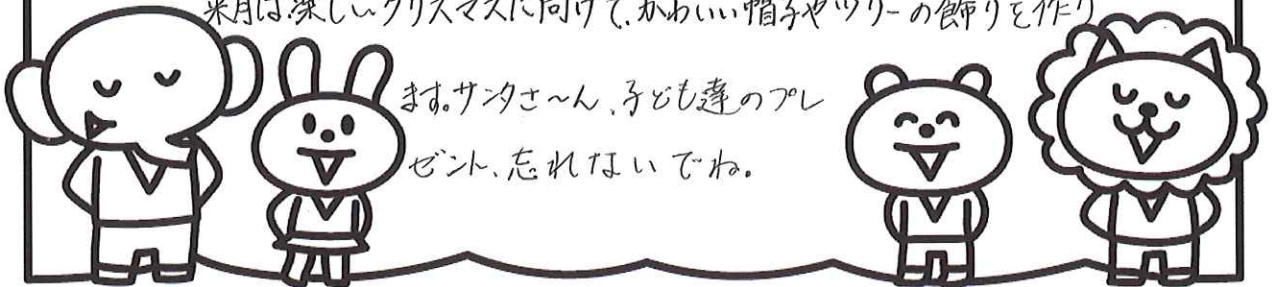 来月は、楽しいクリスマスに向けて、かわいい帽子やツリーの飾りを作り
ます。サンタさ〜ん、子ども達のプレ
ゼント、忘れないでね。